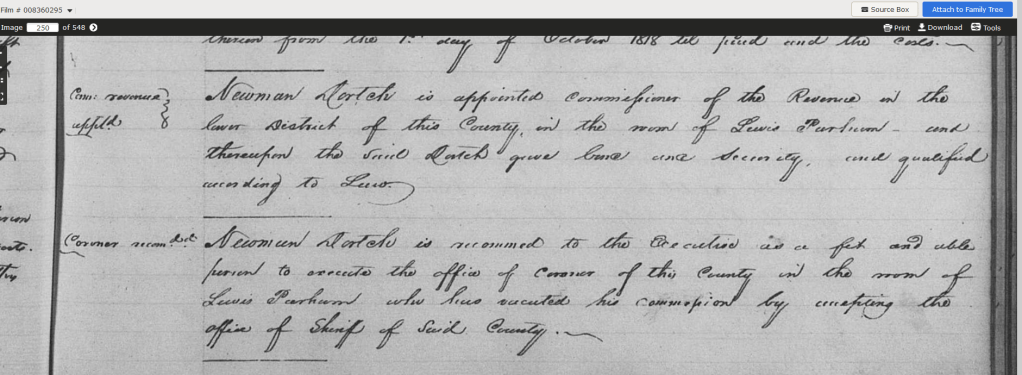 Film # 008360295
Source Box
Attach to Family Tree
Image 250 of 548
Print
Download
Tools
thereon from the 1st day of October 1818 til paid and the Costs.
Com: revenue
apptd.
Newman Dortch is appointed Commissioner of the Revenue in the
lower District of this County, in the room of Lewis Parham - and
thereupon the said Dortch gave bond and security, and qualified
according to Law.
Coroner recomded.
Newman Dortch is recommed to the Executive as a fit and able
person to execute the office of Coroner of this County in the room of
Lewis Parham who has vacated his commission by accepting the
office of Sheriff of said County.